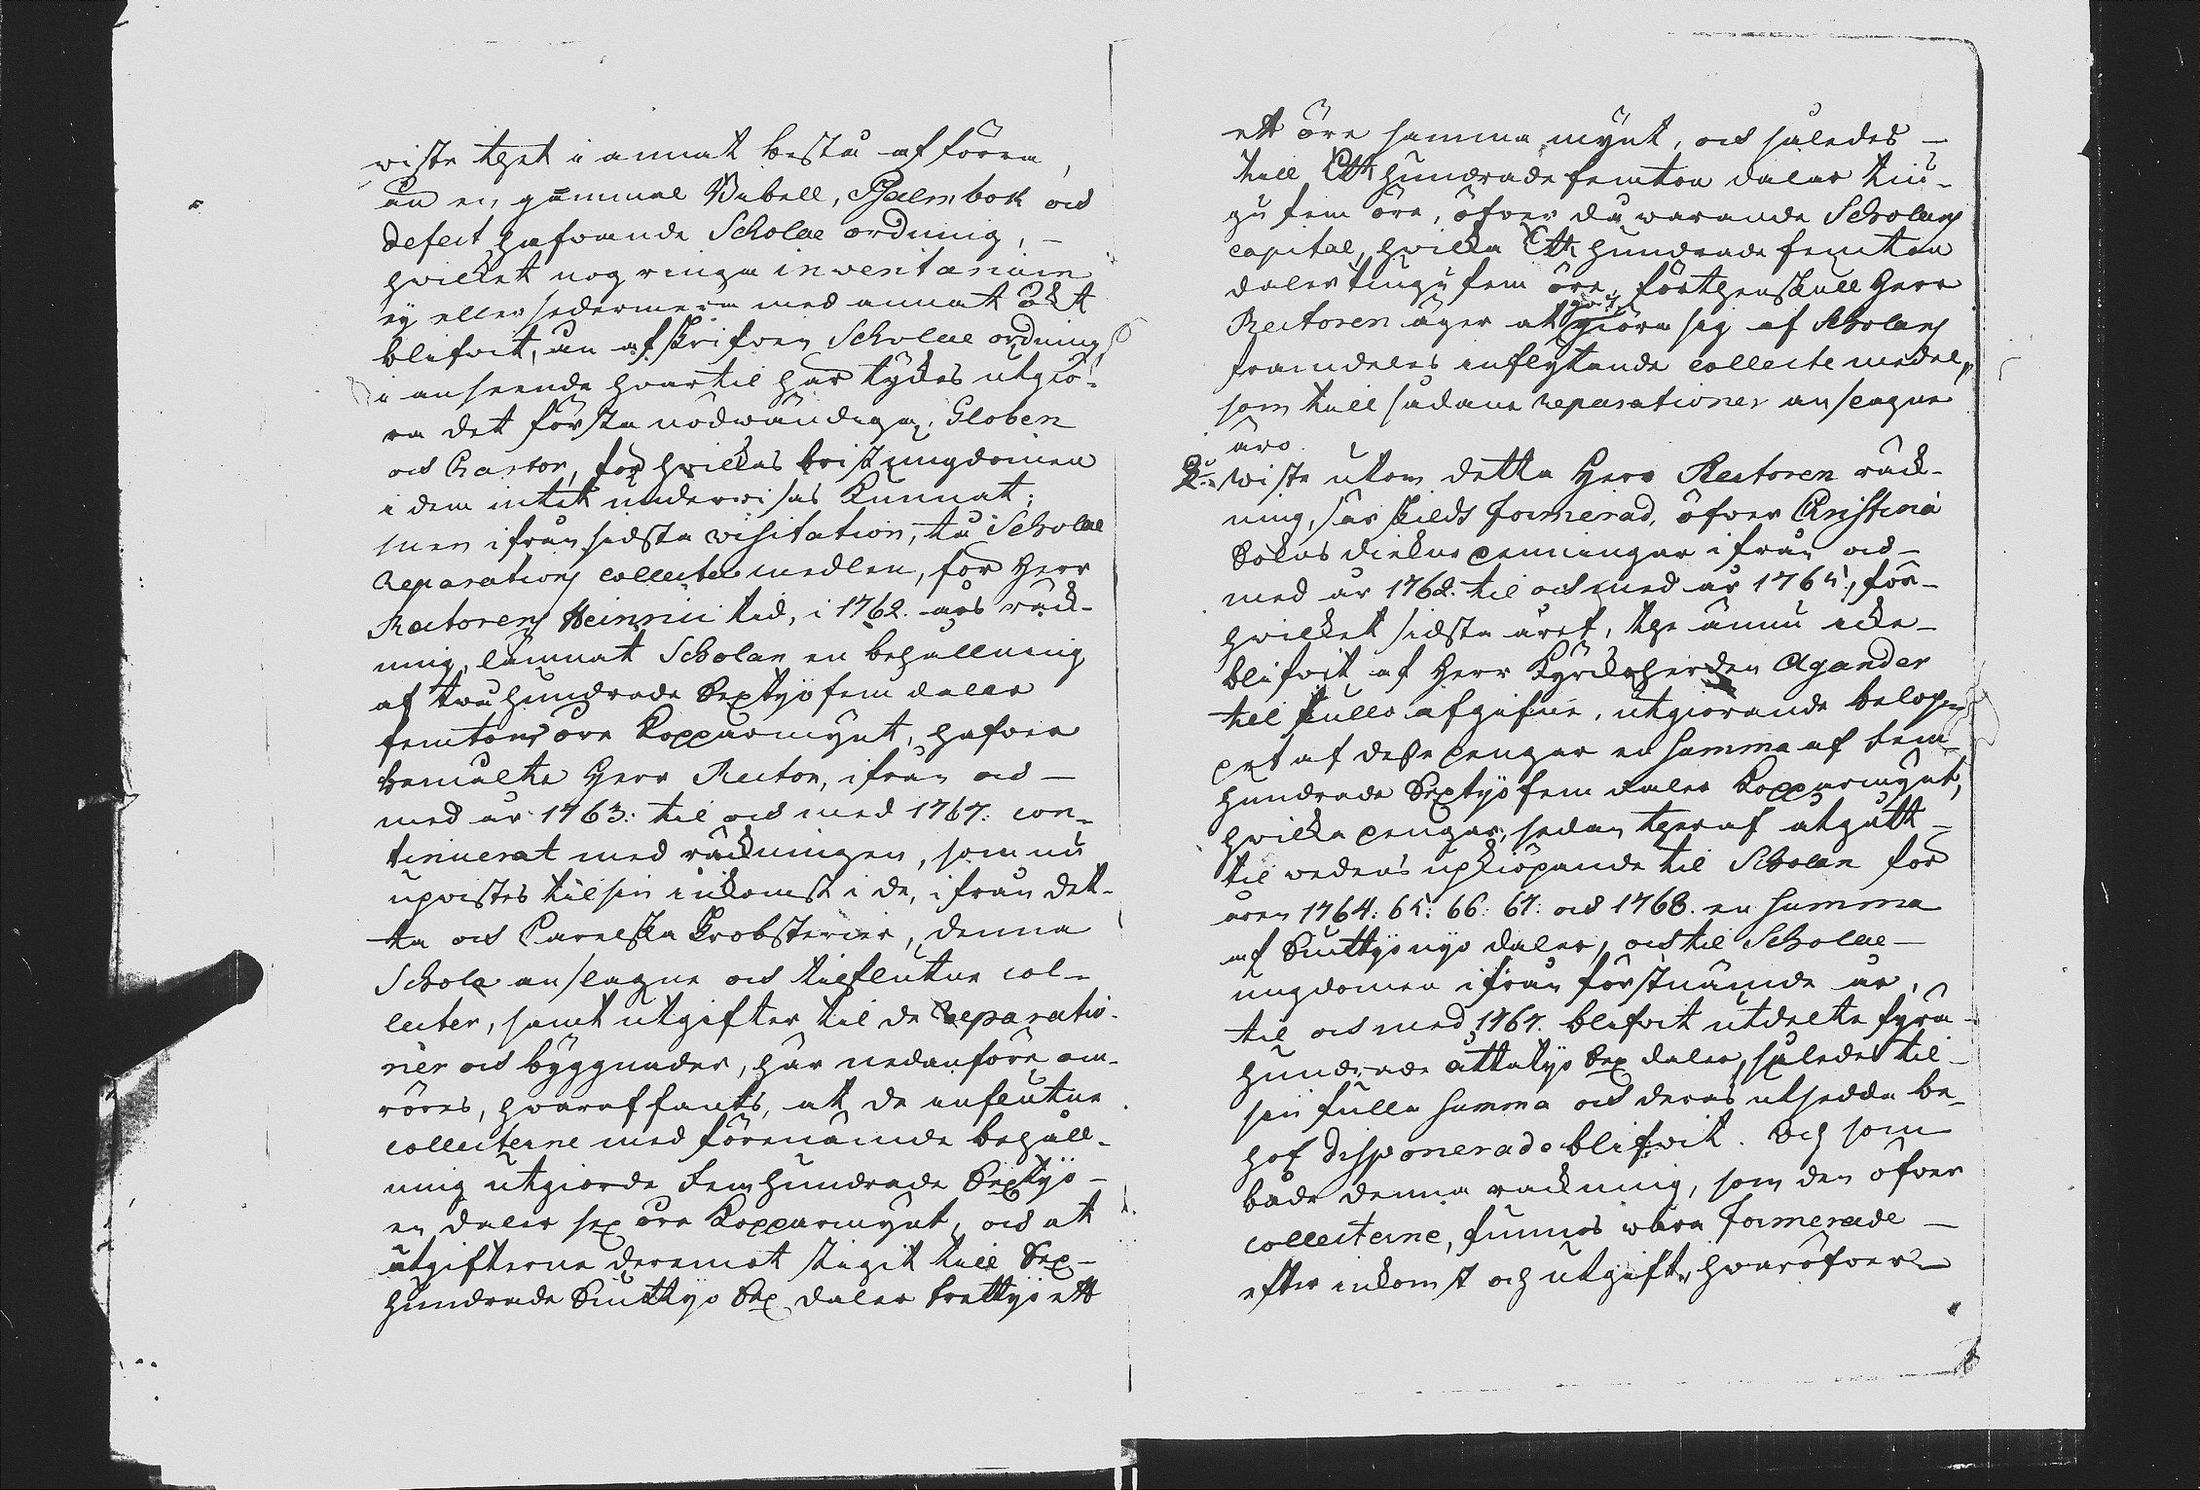 wiste thet i annat bestå af förra,
än en gammal Bibell, Psalmbok och
defect hafvande Scholae ordning, –
hvilket nog ringa inventarium
ey eller sedermera med annat ökt
blifvit, än afskrifven Scholae ordning
i anseende hvartil här tyckes utgiö-
ra det första nödwändiga, Globen
och Cartor, for hvilkas brist ungdomen
i dem intet underwisas kunnat;
men ifrån sidsta visitation, då Scholae
Reparations collecte medlen, för Herr
Rectorens Heinricii tid, i 1762. års räck-
ning, lämnat Scholan en behållning
af twåhundrade Sextyo fem daler
femton öre Kopparmynt, hafver
bemälte Herr Rector, ifrån och –
med år 1763: til och med 1767: con-
tinuerat med räckningen, som nu
upvistes til sin inkomst i de, ifrån det-
ta och Carelska Probsterier, denna
Schola anslagne och tilflutne col-
lecter, samt utgifter til de Reparatio-
ner och byggnader, här nedanföre om-
röres, hvaraf fants, at de influtne
collecterne med förenämde behåll-
ning utgiorde Femhundrade Sextyo –
en daler sex öre Kopparmynt, och at
utgifterna deremot stigit till Sex-
hundrade Siuttyo Sex daler trettyo ett
ett öre samma mynt, och således –
till Ett hundrade femton daler tiu-
gu fem öre, öfver då warande Scholans
capital, hvilka Ett hundrade femton
daler tiugu fem öre, förthenskull Herr
Rectoren äger at giöra sig af Scholans
framdeles inflytande collecte medel,
som till sådane reparationer anslagne
äro.
2:o Wiste utom detta Herr Rectoren räck-
ning, särskildt formerad, öfver Christina
Sokns diekne penningar ifrån och –
med år 1762. til och med år 1765, för –
hvilket sidsta året, the ännu icke –
blifvit af Herr Kyrckoherden Agander
til fullo afgifne, utgiorande belop-
pet af desse pengar en Summa af fem
hundrade Sextyo fem daler Kopparmynt,
hvilka pengar, sedan theraf utgått –
til vedens upkiöpande til Scholan för
åren 1764: 65: 66: 67: och 1768. en Summa
af Siuttyo nyo daler, och til Scholae –
ungdomen ifrån förstnämde år,
til och med 1767. blifvit utdelte fyra-
hundrade åttatyo Sex daler, således til –
sin fulla Summa och deras utsedda be-
hof disponerade blifvit. Och som
både denna räckning, som den öfver
collecterne, funnos wara formerade –
efter inkomst och utgift, hvaröfver